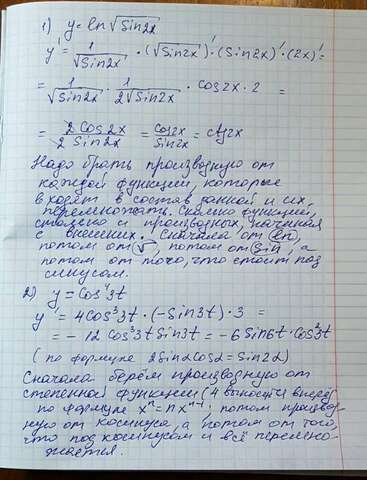 1) y = ln √sin2x
y' = 1/√sin2x · (√sin2x)' · (sin2x)' · (2x)' =
= 1/√sin2x · 1/2√sin2x · cos2x · 2 =
= 2cos2x/2sin2x = cos2x/sin2x = ctg2x
Надо брать производную от
каждой функции, которые
входят в состав данной и их
перемножать. Сколько функций,
столько и производных, начиная
с внешних. Сначала от ln,
потом от √, потом от sin, а
потом от того, что стоит под
синусом.
2) y = cos⁴3t
y' = 4cos³3t · (-sin3t) · 3 =
= -12cos³3t sin3t = -6sin6t · cos²3t
(по формуле 2sinα cosα = sin2α)
Сначала берём производную от
степенной функции (4 выносим вперёд)
по формуле xⁿ = nxⁿ⁻¹, потом производ-
ную от косинуса, а потом от того,
что под косинусом и всё перемно-
жается.